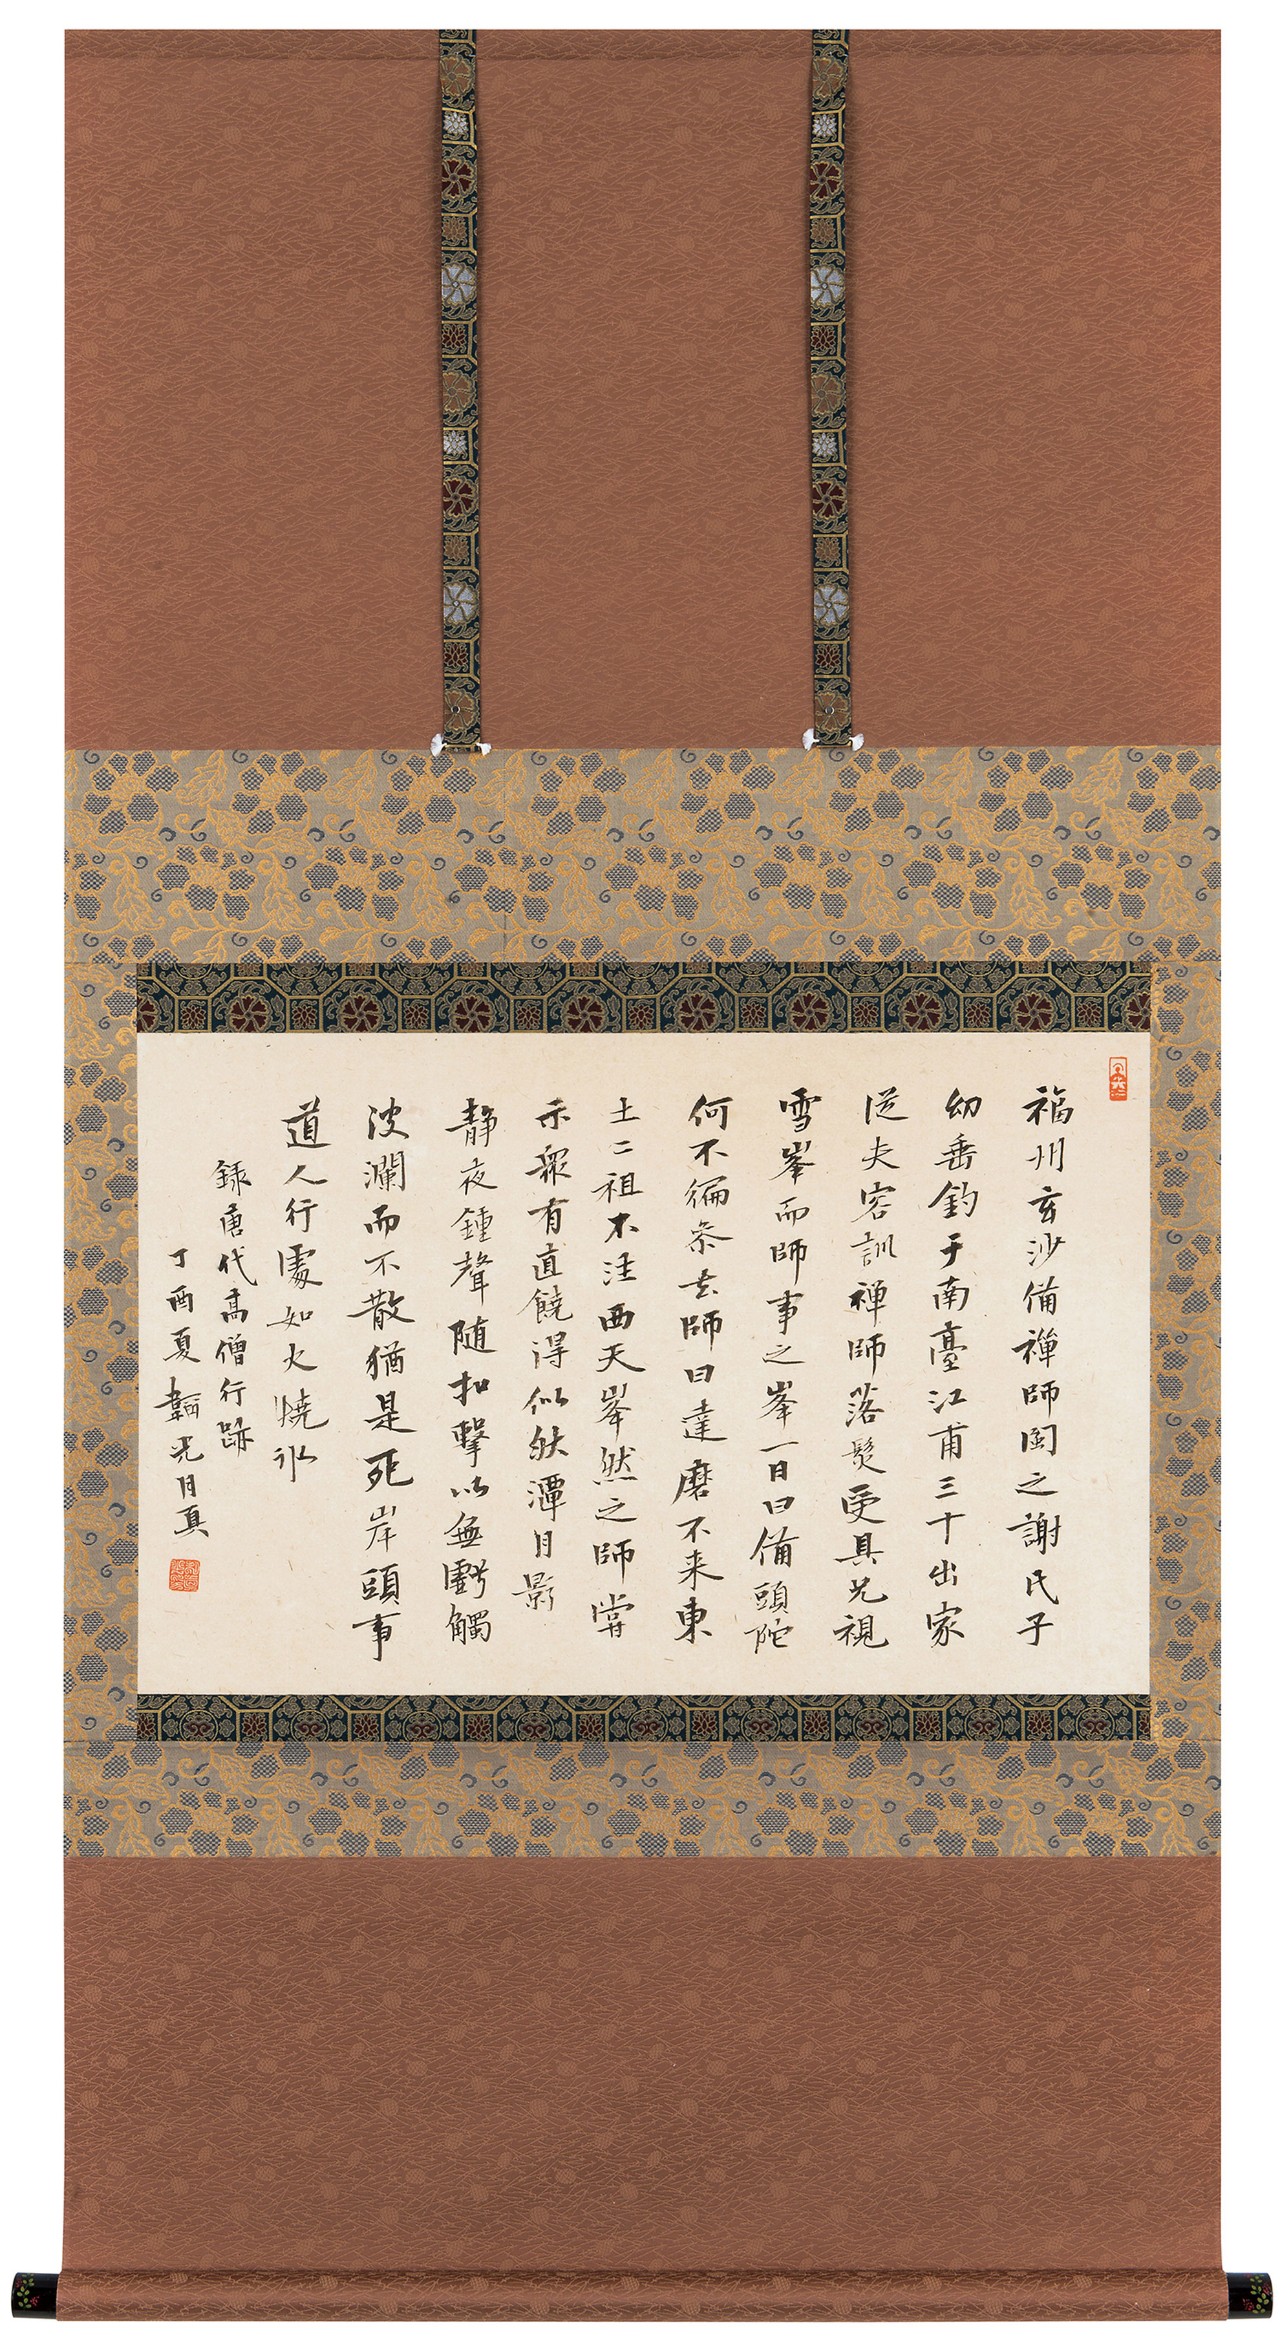 福州玄沙備禪師閩之謝氏子
幼垂釣于南臺江甫三十出家
從夫容訓禪師落髮受具兄視
雪峯而師事之峯一日曰備頭陀
何不徧叅去師曰達磨不来東
土二祖不往西天峯然之師嘗
示衆有直饒得似秋潭月影
静夜鍾聲随扣擊以無虧觸
波瀾而不散猶是死岸頭事
道人行處如火燒冰
録唐代高僧行跡
丁酉夏韜光月真